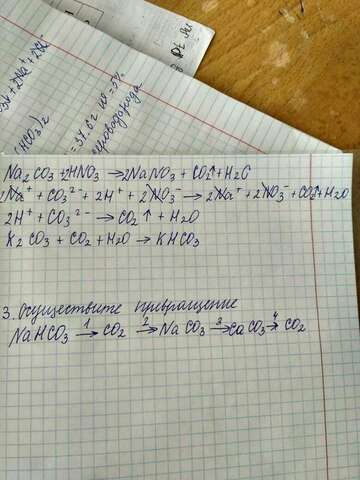 Na₂CO₃ + 2HNO₃ → 2NaNO₃ + CO₂↑ + H₂O
2Na⁺ + CO₃²⁻ + 2H⁺ + 2NO₃⁻ → 2Na⁺ + 2NO₃⁻ + CO₂↑ + H₂O
2H⁺ + CO₃²⁻ → CO₂↑ + H₂O
K₂CO₃ + CO₂ + H₂O → KHCO₃
3. Осуществите превращение
NaHCO₃ 1→ CO₂ 2→ Na CO₃ 3→ CaCO₃ 4→ CO₂